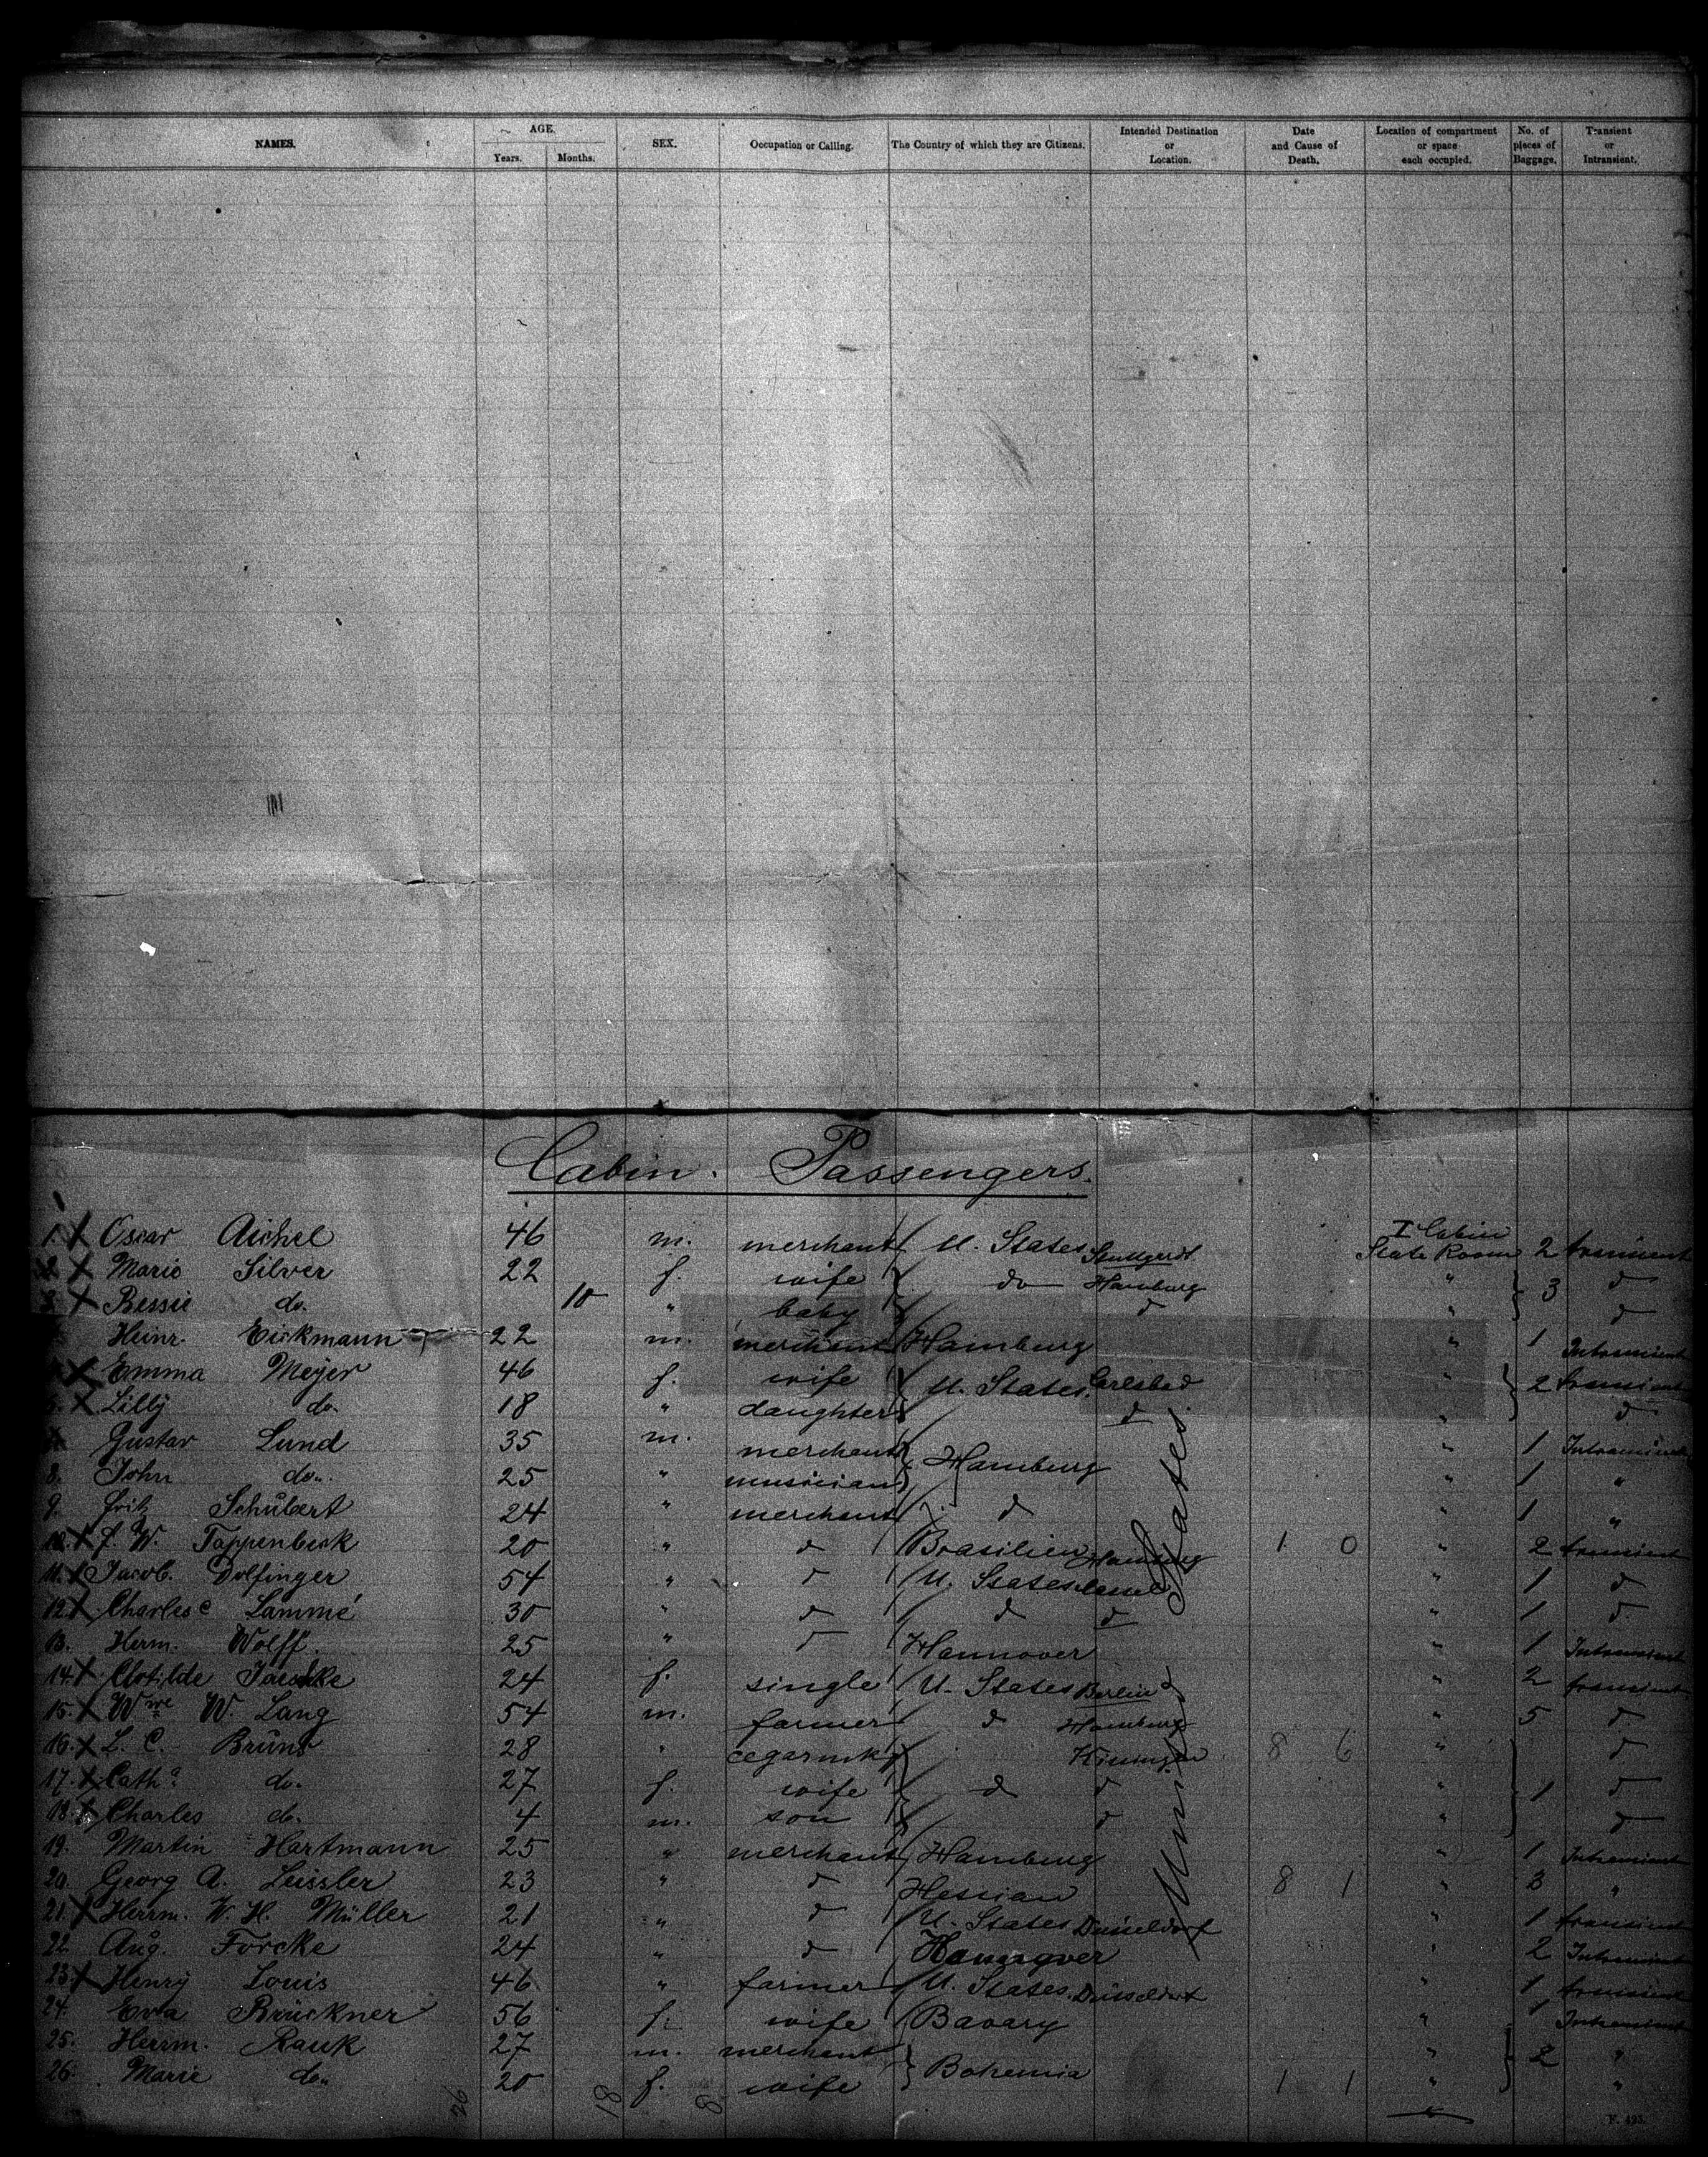 NAMES. AGE. Years. Months. SEX. Occupation or Calling. The Country of which they are Citizens. Intended Destination or Location. Date and Cause of Death. Location of compartment or space each occupied. No. of pieces of Baggage. Transient or Intransient.
Cabin. Passengers.
1. X Oscar Aichel 46 m. merchant U. States Stuttgardt I Cabin State Room 2 transient
2. X Marie Silver 22 f. wife do Hamburg " 3 d
3. X Bessie do. 10 " baby d " d
Heinr. Eickmann 22 m. merchant Hamburg " 1 Intransient
X Emma Meyer 46 f. wife U. States Carlsbad " 2 transient
X Lilly do. 18 " daughter d " d
Gustav Lund 35 m. merchant Hamburg " 1 Intransient
8. John do. 25 " musician " 1 "
9. Fritz Schubert 24 " merchant d " 1 "
10. X F. W. Tappenbeck 20 " d Brasilien Hamburg 1 0 " 2 transient
11. X Jacob. Dolfinger 54 " d U. States Cassel " 1 d
12. X Charles Lammé 30 " d d d " 1 d
13. Herm. Wolff. 25 " d Hannover " 1 Intransient
14. X Clotilde Jaeschke 24 f. single U. States Berlin " 2 transient
15. X Wm W. Lang 54 m. farmer d Hamburg " 5 d
16. X L. C. Brüns 28 " cegarmk 8 6 " d
17. X Cath. do. 27 f. wife d d " 1 d
18. X Charles do. 4 m. son d " d
19. Martin Hartmann 25 " merchant Hamburg " 1 Intransient
20. Georg A. Leissler 23 " d Hessian 8 1 " 3 "
21. X Herrm. W. H. Müller 21 " d U. States Düsseldorf " 1 transient
22. Aug. Forcke 24 " d Hannover " 2 Intransient
23. X Henry Louis 46 " farmer U. States Düsseldorf " 1 transient
24. Eva Brückner 56 f. wife Bavary " 1 Intransient
25. Herrm. Rauk 27 m. merchant Bohemia " 2 "
26. Marie do. 20 f. wife 1 1 " "
United States
26 18 8
F. 493.